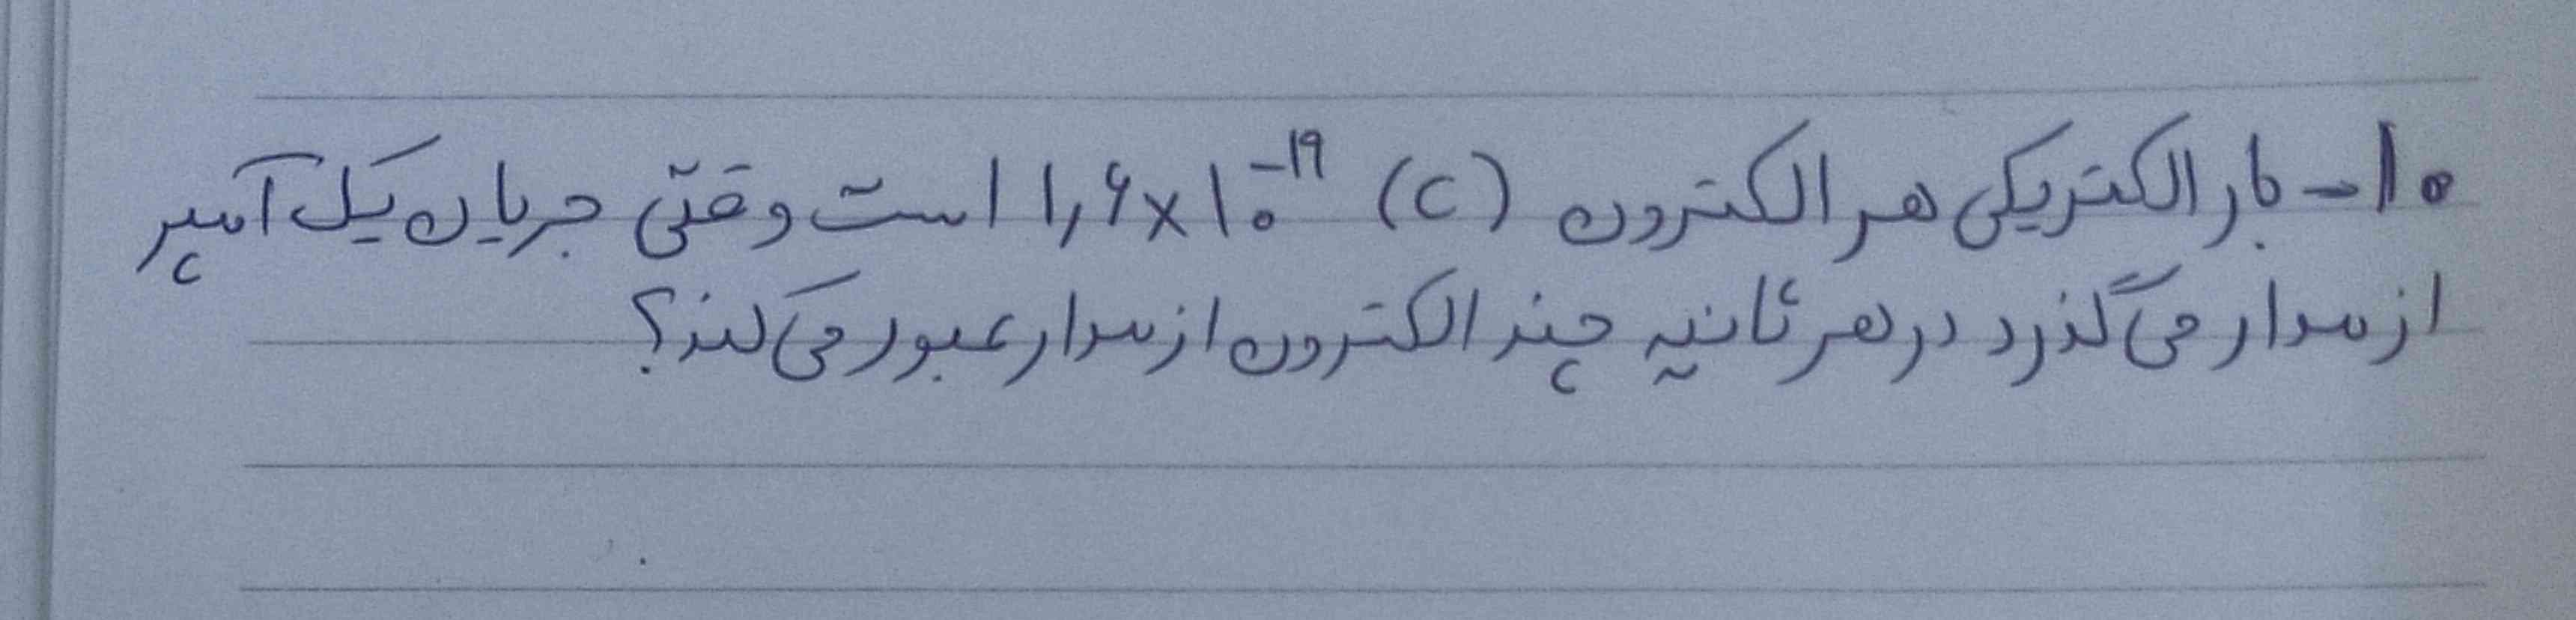 ۱۰- بار الکتریکی هر الکترون (C) ۱,۶×۱۰^-۱۹ است وقتی جریان یک آمپر
از مدار می گذرد در هر ثانیه چند الکترون از مدار عبور می کند؟